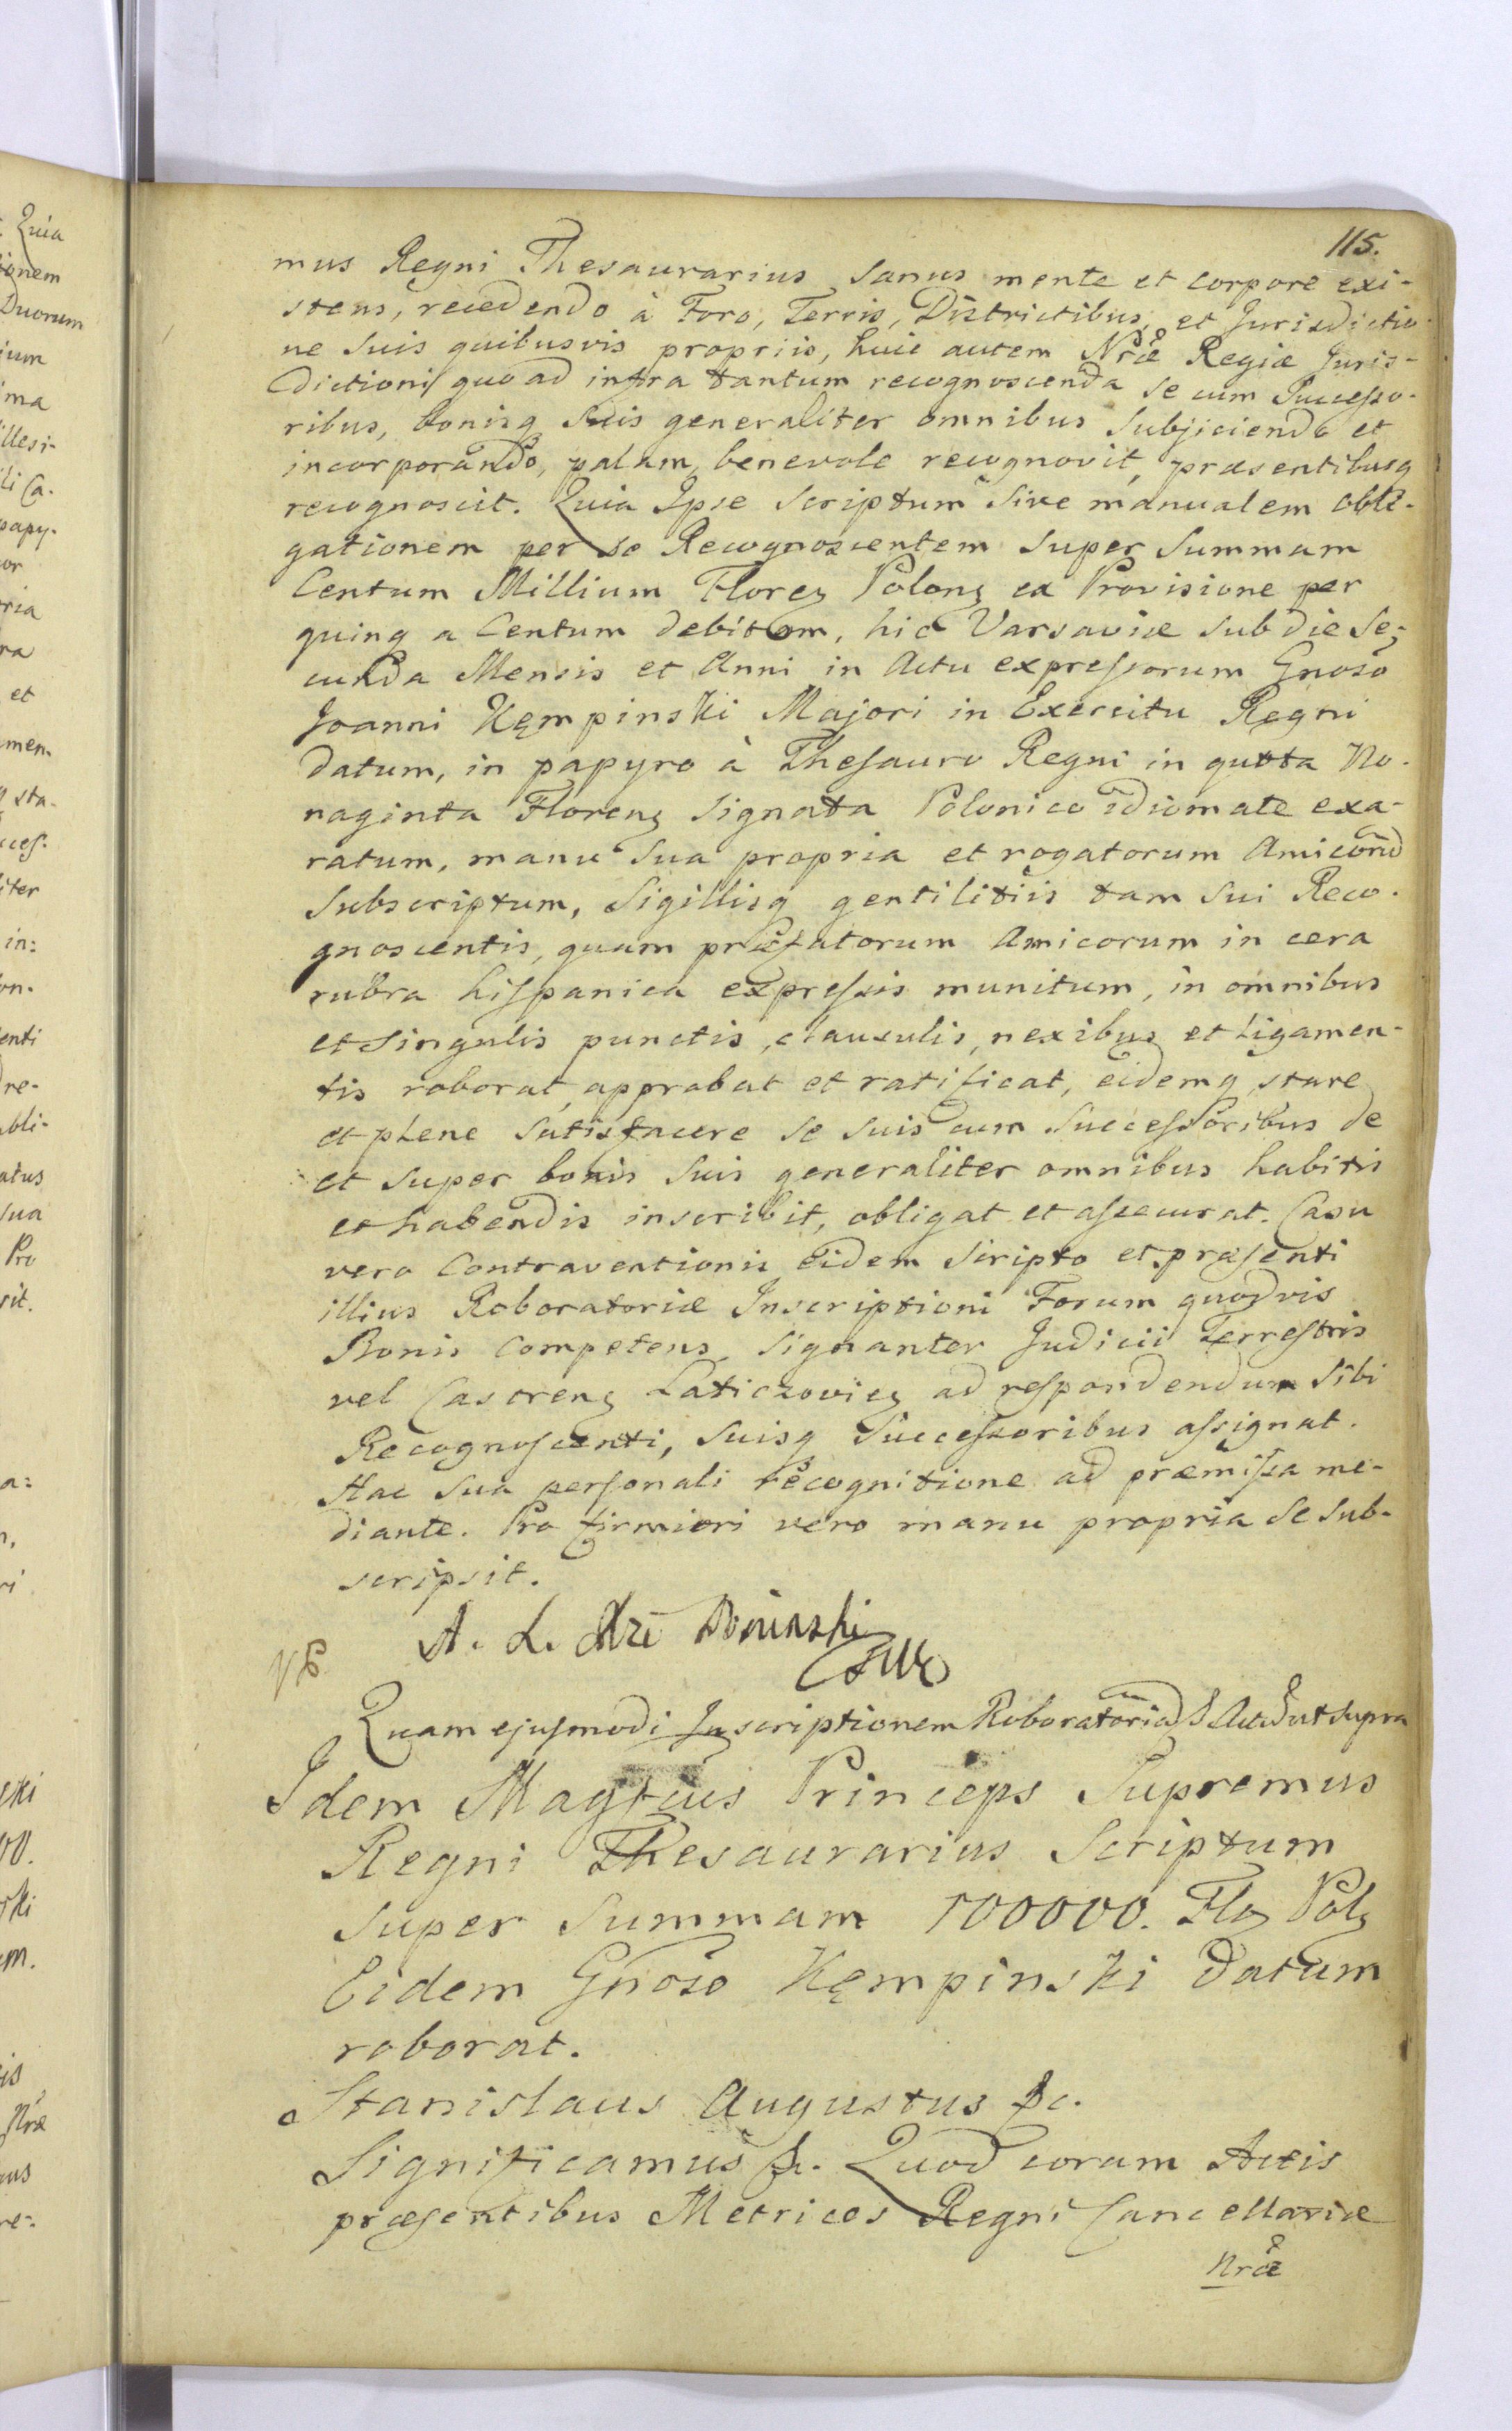 115.
mus Regni Thesaurarius sanus mente et corpore exi-
stens, recedendo à Foro, Terris, Districtibus, et Jurisdictio-
ne suis quibusvis propriis, huic autem Nrae Regiae Juris-
dictioni quo ad infra tantum recognoscenda se cum Successo-
ribus, bonisq suis generaliter omnibus subjiciendo et
incorporando, palam, benevole recognovit, praesentibusq
recognoscit. Quia Ipse Scriptum sive manualem obli-
gationem per se Recognoscentem super Summam
Centum Millium Floreń Poloń ex Provisione per
quinq a Centum debitam, hic Varsaviae sub die Se-
cunda Mensis et Anni in Actu expressorum Gnoso
Joanni Kęmpinski Majori in Exercitu Regni
datum, in papyro à Thesauro Regni in quota No-
naginta Floreń signata Polonico idiomate exa-
ratum, manu sua propria et rogatorum Amicorũ
subscriptum, Sigillisq gentilitiis tam sui Reco-
gnoscentis, quam praefatorum Amicorum in cera
rubra hispanica expressis munitum, in omnibus
et singulis punctis, clausulis, nexibus et ligamen-
tis roborat, approbat et ratificat, eidemq stare
et plene satisfacere se suis cum Successoribus de
et super bonis suis generaliter omnibus habitis
et habendis inscribit, obligat et assecurat. Casu
vero Contraventionis eidem Scripto et praesenti
illius Roboratoriae Inscriptioni Forum quodvis
Bonis Competens, signanter Judicii Terrestris
vel Castreń Laticzovień ad respondendum sibi
Recognoscenti, suisq Successoribus assignat.
Hac sua personali recognitione ad praemissa me-
diante. Pro firmiori vero manu propria se sub-
scripsit.
A. L. Poninski
Quam ejusmodi Inscriptionem Roboratoria Actu ut supra
Idem Magfcus Princeps Supremus
Regni Thesaurarius Scriptum
super Summam 100000. Flo Pol
Eidem Gnoso Kęmpinski datum
roborat.
Stanislaus Augustus &c.
Significamus &c. Quod coram Actis
praesentibus Metrices Regni Cancellariae
Nrae